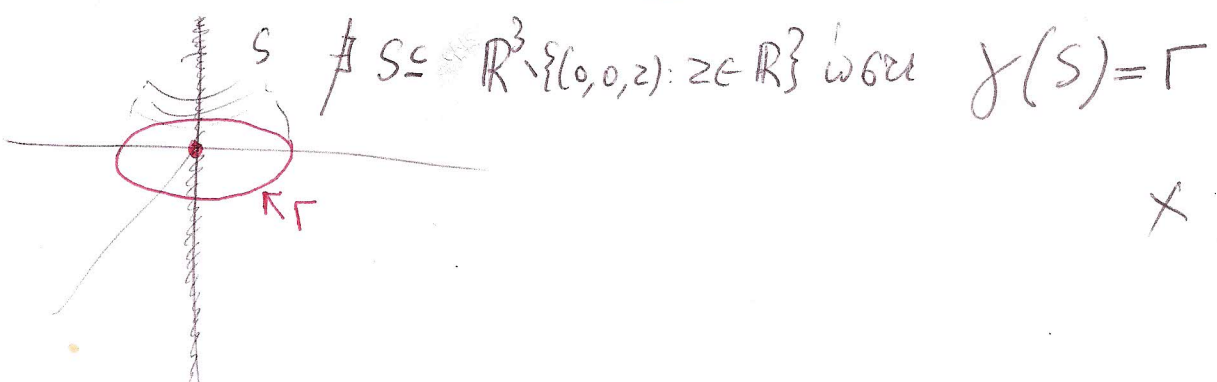 S ∄ S ⊆ ℝ³∖{(0,0,z): z∈ℝ} ώστε γ(S) = Γ
Γ
x